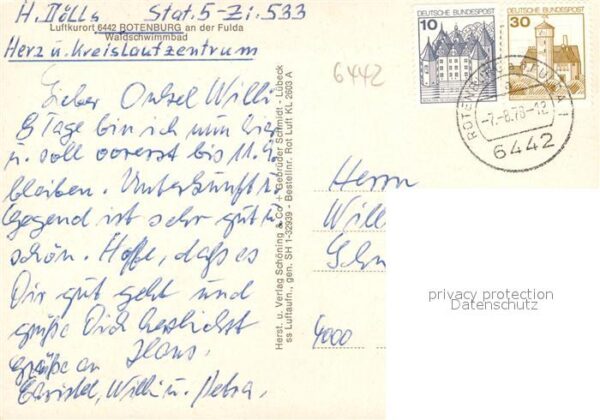 H. Dölls Stat.5-Zi.533
Luftkurort 6442 ROTENBURG an der Fulda
Waldschwimmbad
Herz u. Kreislaufzentrum
Lieber Onkel Willi
8 Tage bin ich nun hier
u. soll vorerst bis 11.9.
bleiben. Unterkunft u.
Gegend ist sehr gut u.
schön. Hoffe, daß es
Dir gut geht und
grüße Dich herzlichst
Hans.
Grüße an
Christel, Willi u. Petra.
Herst. u. Verlag Schöning & Co + Gebrüder Schmidt - Lübeck
ss Luftaufn., gen. SH 1-32939 - Bestellnr. Rot Luft KL 2603 A
6442
10 DEUTSCHE BUNDESPOST
30 DEUTSCHE BUNDESPOST
ROTENBURG a.d. FULDA 1
-7.-8.78-12
6442
Herrn
Will
4000
privacy protection
Datenschutz